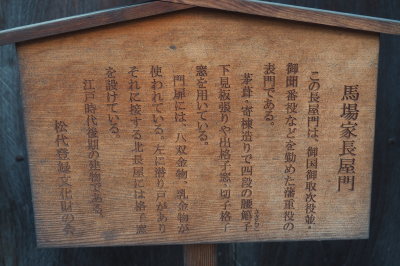 馬場家長屋門
この長屋門は、御国御取次役並・
御聞番役などを勤めた藩重役の
表門である。
茅葺、寄棟造りで四段の腰簓子
下見板張りや出格子窓・切子格子
窓を用いている。
門扉には、八双金物、乳金物が
使われている。左に潜り戸があり
それに接する北長屋には格子窓
を設けている。
江戸時代後期の建物である。
松代登録文化財の会